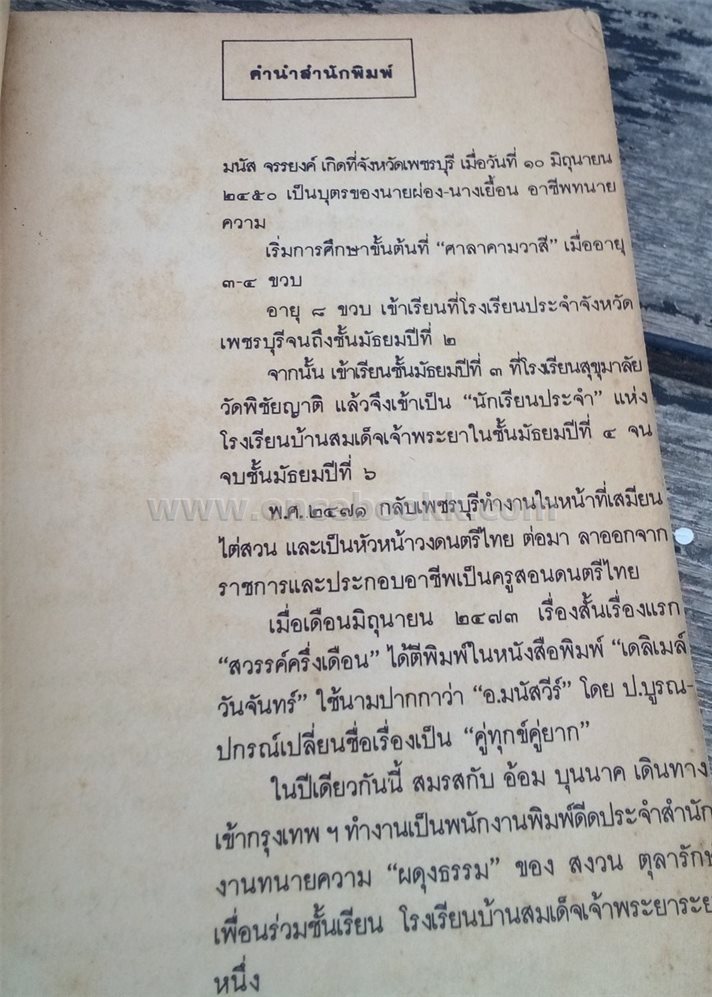 คำนำสำนักพิมพ์
มนัส จรรยงค์ เกิดที่จังหวัดเพชรบุรี เมื่อวันที่ ๑๐ มิถุนายน
๒๔๕๐ เป็นบุตรของนายผ่อง-นางเยื้อน อาชีพทนาย
ความ
เริ่มการศึกษาขั้นต้นที่ “ศาลาคามวาสี” เมื่ออายุ
๓-๔ ขวบ
อายุ ๘ ขวบ เข้าเรียนที่โรงเรียนประจำจังหวัด
เพชรบุรีจนถึงชั้นมัธยมปีที่ ๒
จากนั้น เข้าเรียนชั้นมัธยมปีที่ ๓ ที่โรงเรียนสุขุมาลัย
วัดพิชัยญาติ แล้วจึงเข้าเป็น “นักเรียนประจำ” แห่ง
โรงเรียนบ้านสมเด็จเจ้าพระยาในชั้นมัธยมปีที่ ๔ จน
จบชั้นมัธยมปีที่ ๖
พ.ศ. ๒๔๗๑ กลับเพชรบุรีทำงานในหน้าที่เสมียน
ไต่สวน และเป็นหัวหน้าวงดนตรีไทย ต่อมา ลาออกจาก
ราชการและประกอบอาชีพเป็นครูสอนดนตรีไทย
เมื่อเดือนมิถุนายน ๒๔๗๓ เรื่องสั้นเรื่องแรก
“สวรรค์ครึ่งเดือน” ได้ตีพิมพ์ในหนังสือพิมพ์ “เดลิเมล์
วันจันทร์” ใช้นามปากกาว่า “อ.มนัสวีร์” โดย ป.บูรณ-
ปกรณ์เปลี่ยนชื่อเรื่องเป็น “คู่ทุกข์คู่ยาก”
ในปีเดียวกันนี้ สมรสกับ อ้อม บุนนาค เดินทาง
เข้ากรุงเทพ ฯ ทำงานเป็นพนักงานพิมพ์ดีดประจำสำนัก
งานทนายความ “ผดุงธรรม” ของ สงวน ตุลารักษ์
เพื่อนร่วมชั้นเรียน โรงเรียนบ้านสมเด็จเจ้าพระยาระยะ
หนึ่ง